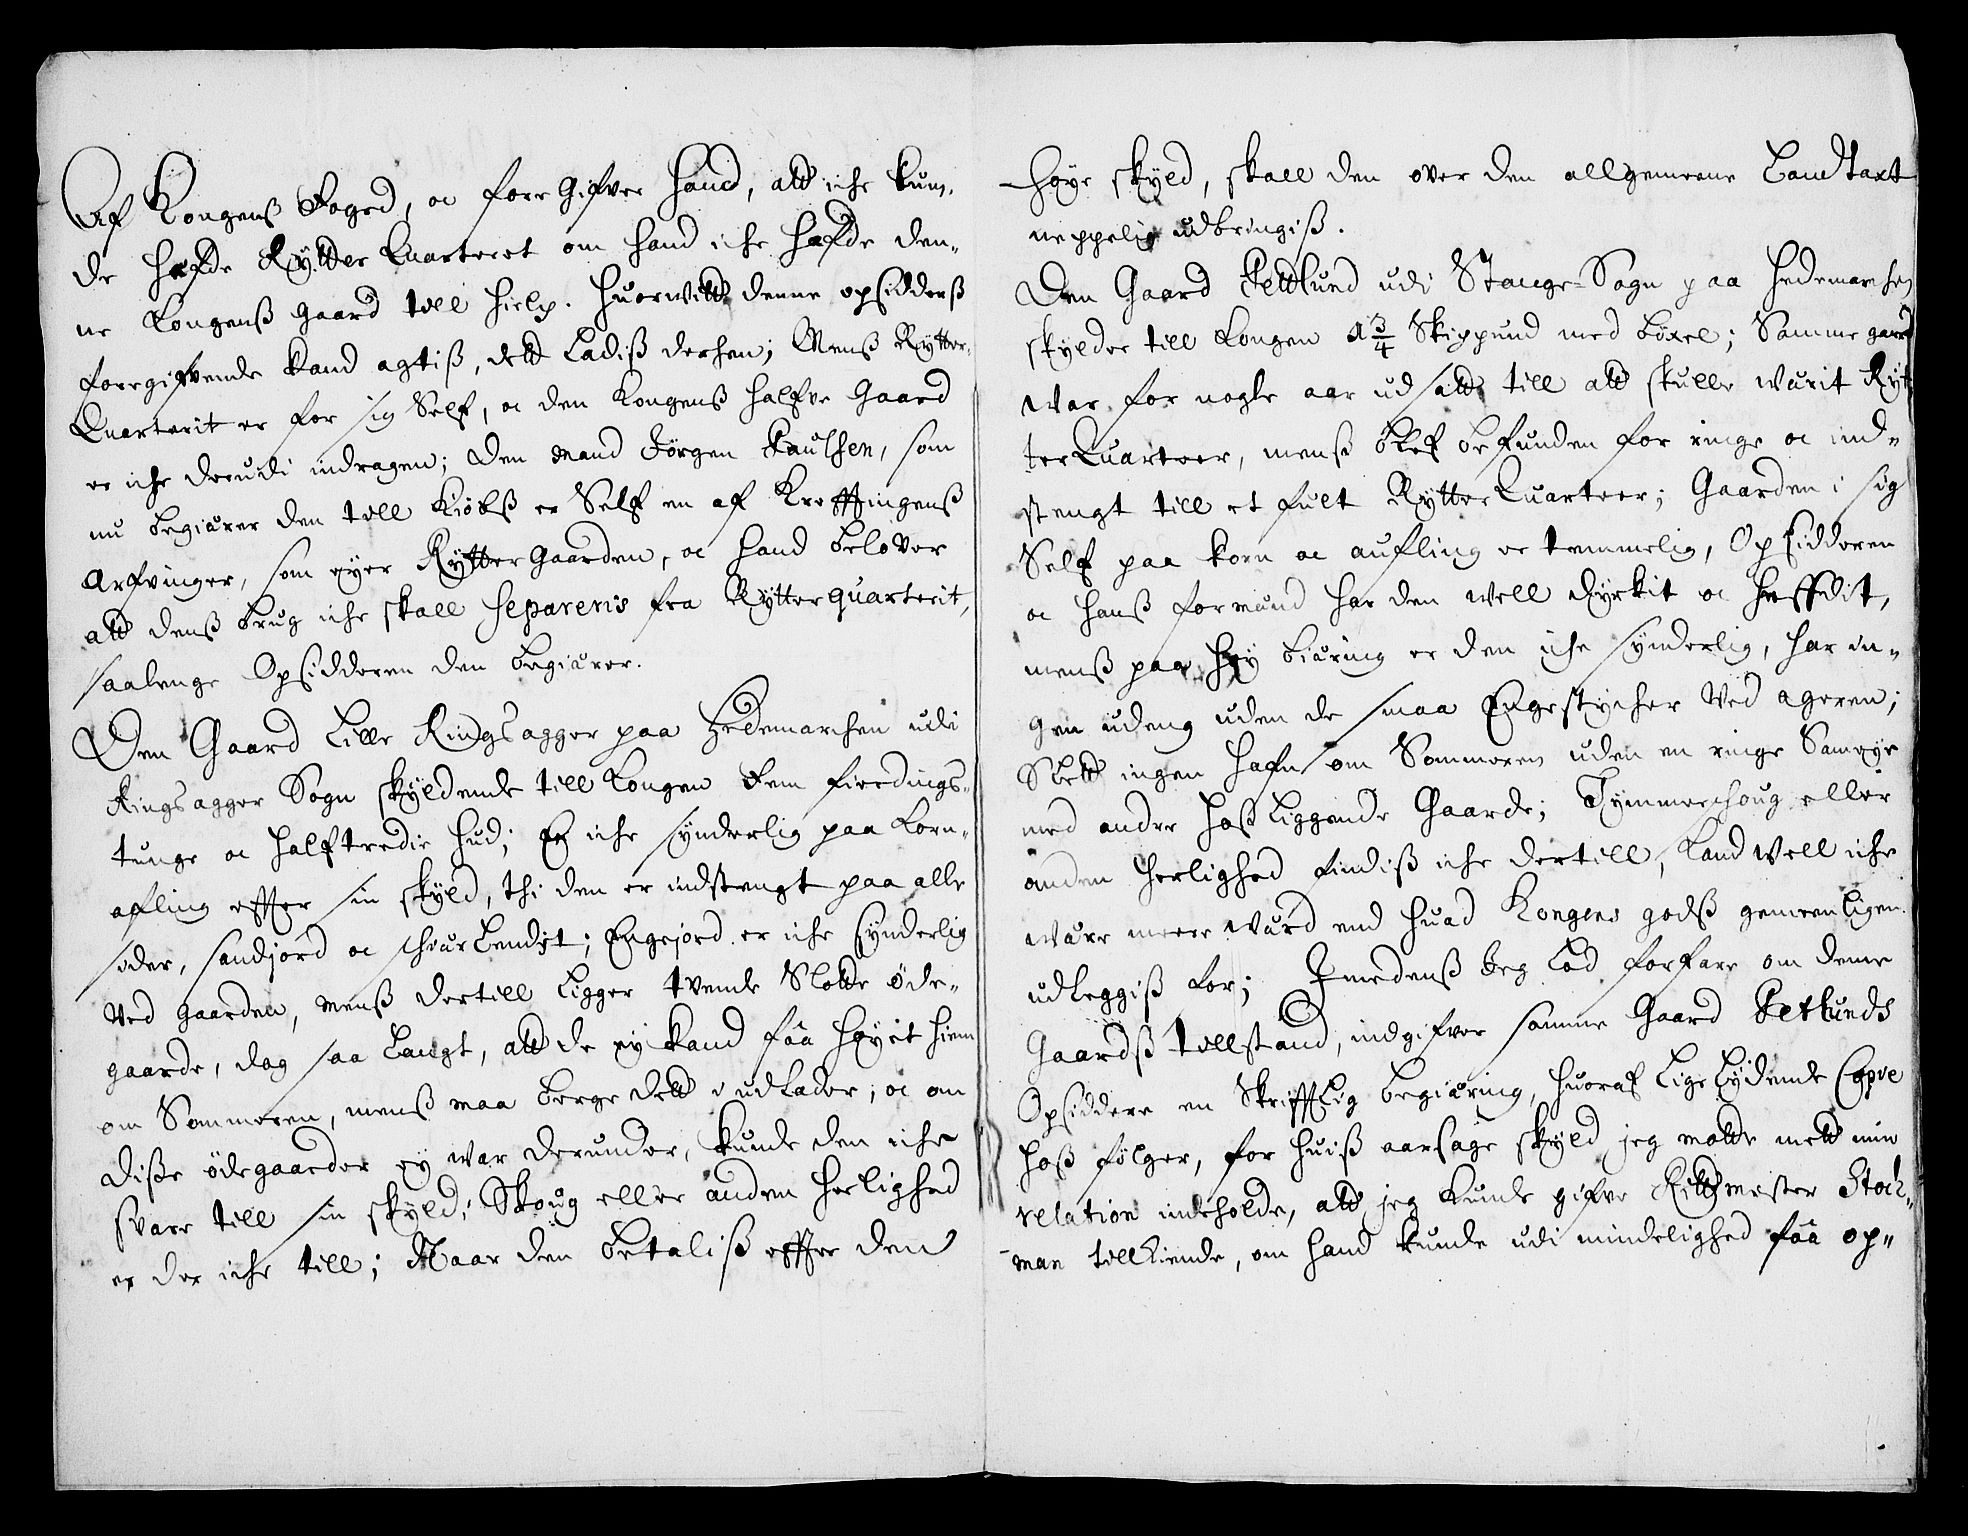 Af Kongenß Foged, oc foregifver hand, att iche kun-
de hefde Rytter Quarteret om hand iche hafde den-
ne Kongenß gaard till hielp. Huorwitt denne opsidderß
foregifvende kand agtiß, dett Ladiß derhen; Menß Rytter-
Quarterit er for sig Self, oc den Kongenß halfve Gaard
er iche derudi indragen; Den Mand Jörgen Paulsen, som
nu begiærer den till Kiöbß er Self en af Kreftingenß
Arfvinger, som eyer Rytter Gaarden, oc hand belover
att denß brug iche skall separeris fra Rytterquarterit,
saalenge Opsidderen den begiærer.
Den Gaard Lille Ringsagger paa Hedemarchen udi
Ringsagger Sogn skyldende till Kongen Fem fierdings-
tunge oc halftredie hud; Er iche synderlig paa Korn-
afling effter sin skyld, thi den er indstengt paa alle
sider, sandjord oc suær Lendit; Engejord er iche synderlig
Ved gaarden, menß dertill Ligger tvende Slotte öde-
gaarde, dog saa Langt, att de ey kand faa höyet hiem
om Sommeren, menß maa berge dett i udlader; oc om
diße ödegaarder ey war derunder, kunde den iche
svare till sin skyld; Skoug eller anden herlighed
er der iche till; Naar den betaliß effter den
höye skyld, skall den over den allgemeene Landtaxt
neppelig udbringiß.
Den Gaard Pettlund udi Stange-Sogn paa Hedemarchen
skylder till Kongen 1 3/4 Skippund med böxel; Samme gaard
war for nogle aar udsatt till att skulle wærit Ryt-
terQuarteer, menß blef befunden for ringe oc ind-
stengt till et fult Rytter Quarteer; Gaarden i sig
Self paa korn oc aufling er temmelig, Opsidderen
oc hanß formand har den well dyrkit oc heffdit,
menß paa Höy biæring er den iche synderlig, har in-
gen udeng uden de smaa Engestycher Ved ageren;
Slett ingen hafn om Sommeren uden en ringe Sameye
med andre hoß Liggende Gaarde; Tymmerhoug eller
anden herlighed findiß iche dertill, Kand well iche
være meere værd end huad Kongens godß gemeenligen
udleggiß for; Jmedenß Jeg Lod forfare om denne
Gaardß tillstand, indgifver samme Gaard Petlunds
Opsiddere en Skrifftlig begiæring, huoraf Ligelydende Copie
hoß fölger, for huiß aarsage skyld jeg motte mett min
relation indeholde, att jeg kunde gifve Rittmester Stock-
man tillkiende, om hand kunde udi mindelighed faa op-